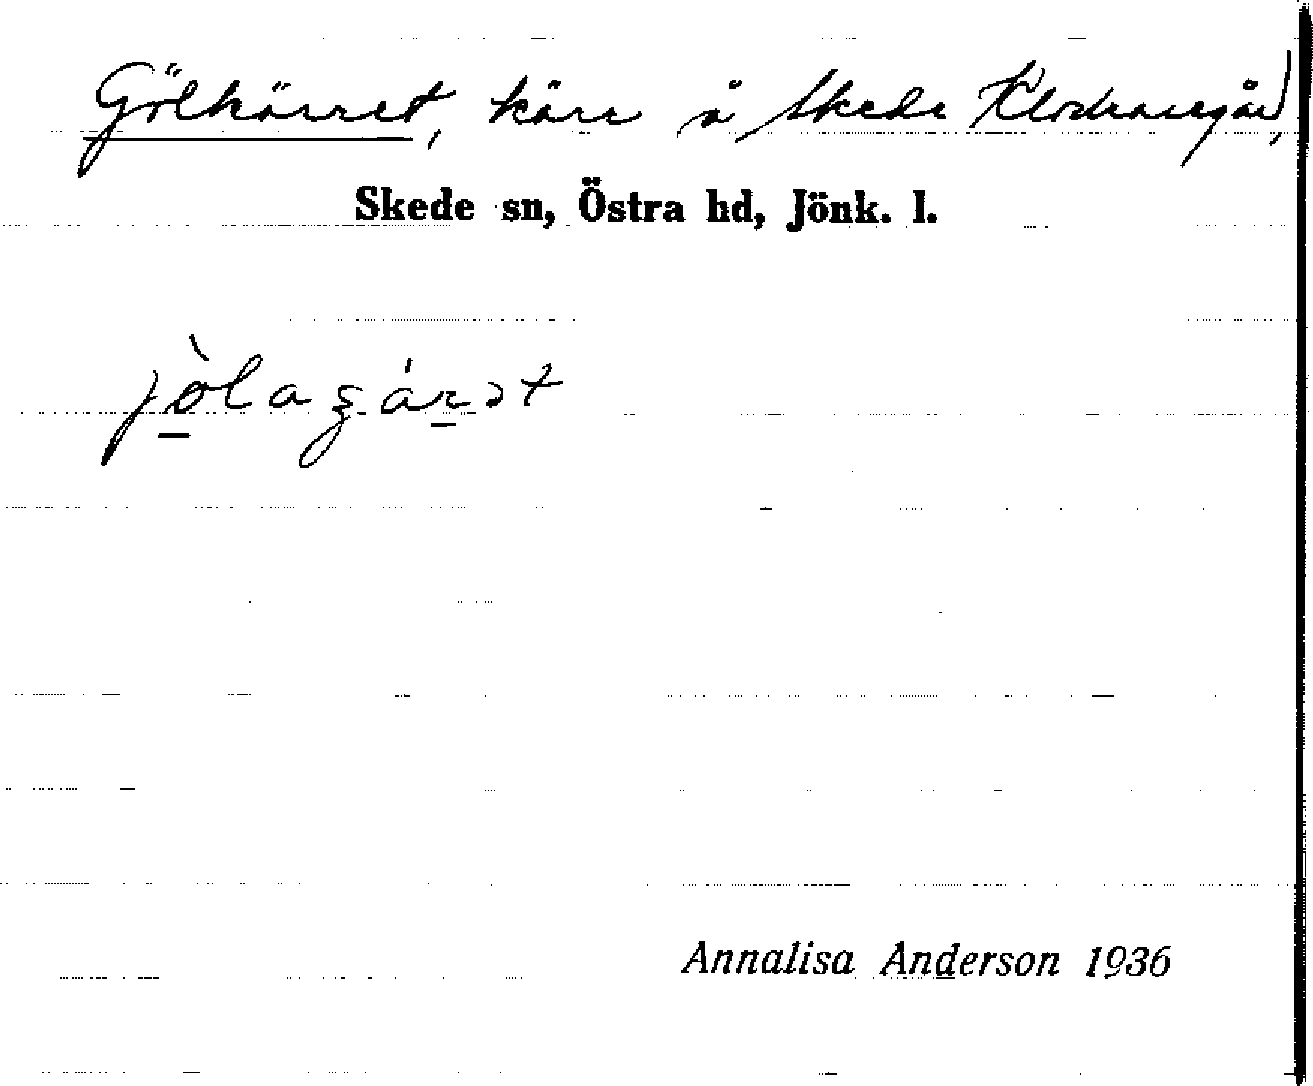 Gölkärret, kärr å Skede Klockaregård,
Skede sn, Östra hd, Jönk. l.
Annalisa Anderson 1936